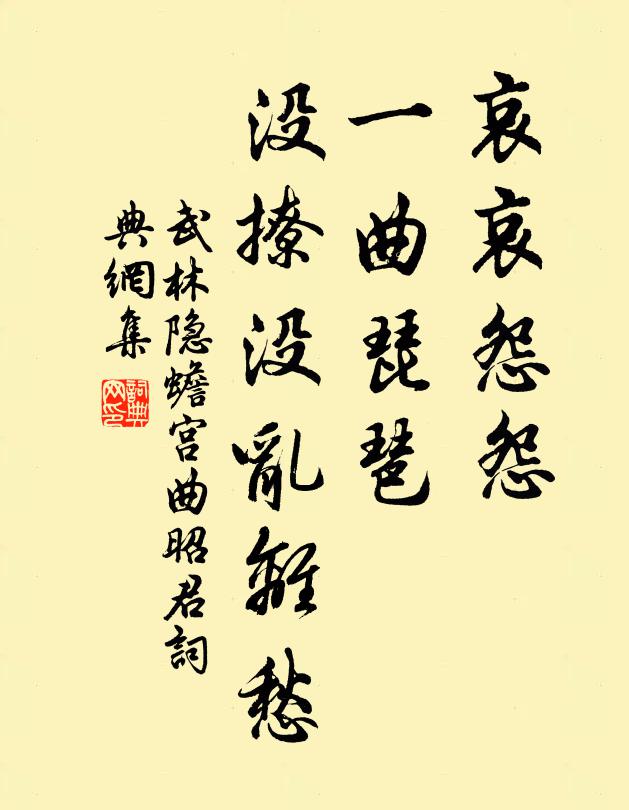 哀哀怨怨
一曲琵琶
没撩没亂離愁
武林隐蟾宫曲昭君詞
典網集
詞典
网印